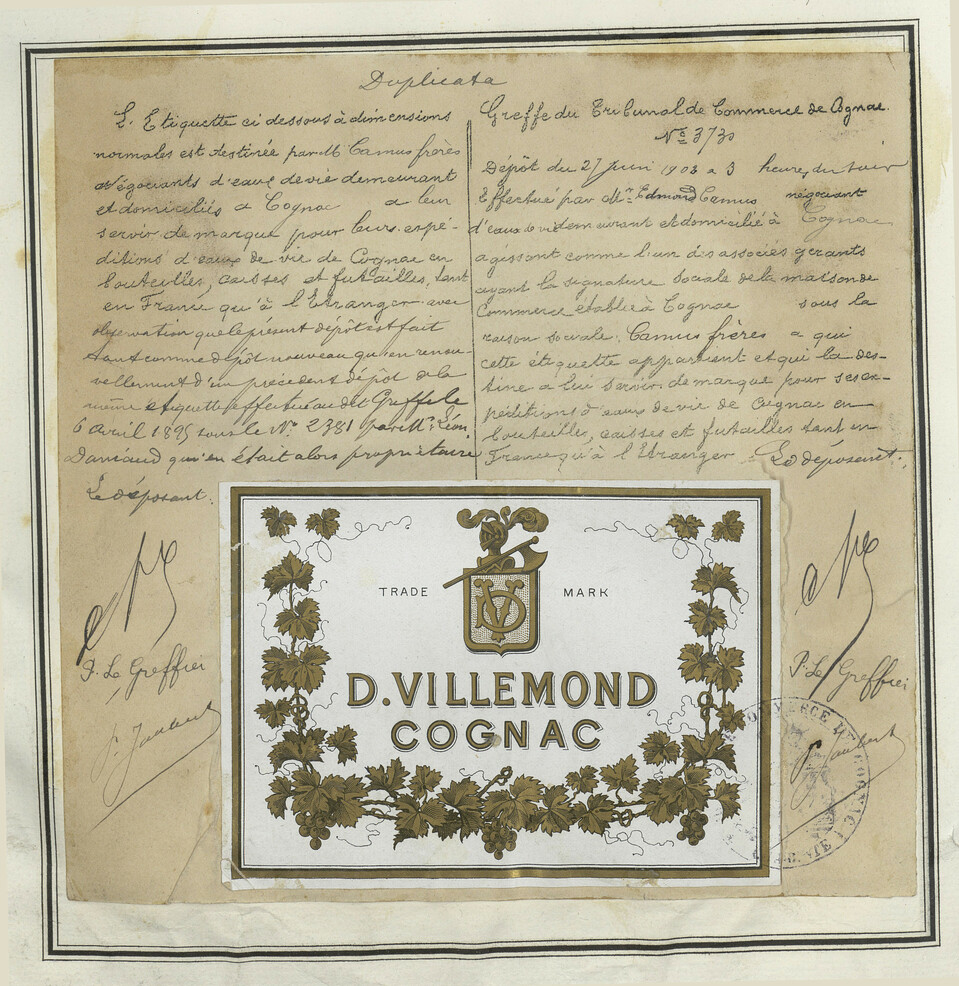 Duplicata
L'Etiquette ci dessous à dimensions
normales est destinée par M. Camus frères
négociants d'eaux de vie demeurant
et domiciliés à Cognac à leur
servir de marque pour leurs expé-
ditions d'eaux de vie de Cognac en
bouteilles, caisses et futailles, tant
en France qu'à l'Etranger avec
observation que le présent dépôt est fait
tant comme dépôt nouveau qu'en renou-
vellement d'un précédent dépôt de la
même étiquette effectué au dit Greffe le
6 Avril 1895 sous le No 2381 par Mr Léon
Damiaud qui en était alors propriétaire
Le déposant.
Greffe du Tribunal de Commerce de Cognac.
No 3730
Dépôt du 27 Juin 1903 à 3 heures du soir
Effectué par Mr Edmond Camus négociant
d'eaux de vie demeurant et domicilié à Cognac
agissant comme l'un des associés gérants
ayant la signature sociale de la maison de
Commerce établie à Cognac sous la
raison sociale: Camus frères à qui
cette étiquette appartient et qui la des-
tine à lui servir de marque pour ses ex-
péditions d'eaux de vie de Cognac en
bouteilles, caisses et futailles tant en
France qu'à l'Etranger. Le déposant.
P. Le Greffier
P. Le Greffier
TRADE MARK
D. VILLEMOND
COGNAC